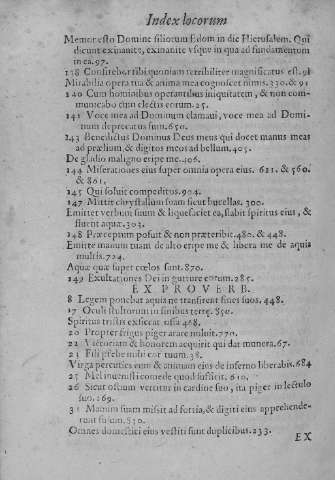 Index locorum
Memor esto Domine filiorum Edom in die Hierusalem. Qui
dicunt exinanite, exinanite vsque in qua ad fundamentum
in ea.97.
138 Confitebor tibi quoniam terribiliter magnificatus est.91
Mirabilia opera tua & anima mea cognoscet nimis.330.& 91
120 Cum hominibus operantibus iniquitatem, & non com-
municabo cum electis eorum.25.
141 Voce mea ad Dominum clamaui, voce mea ad Domi-
num deprecatus sum.650.
143 Benedictus Dominus Deus meus qui docet manus meas
ad prælium, & digitos meos ad bellum.405.
De gladio maligno eripe me.406.
144 Miserationes eius super omnia opera eius. 621. & 560.
& 861.
145 Qui soluit compeditos.904.
147 Mittit chrystallum suam sicut bucellas. 300.
Emittet verbum suum & liquefaciet ea, flabit spiritus eius, &
fluent aquæ.303.
148 Præceptum posuit & non præteribit.480. & 448.
Emitte manum tuam de alto eripe me & libera me de aquis
multis.724.
Aquæ quæ super cœlos sunt.870.
149 Exultationes Dei in gutture eorum.285.
EX PROVERB.
8 Legem ponebat aquis ne transirent fines suos.448.
17 Oculi stultorum in finibus terræ.850.
Spiritus tristis exsiccat ossa 468.
20 Propter frigus piger arare noluit.770.
22 Victoriam & honorem acquirit qui dat munera.67.
23 Fili præbe mihi cor tuum.38.
Virga percuties eum & animam eius de inferno liberabis.684
25 Mel inuenisti comede quod sufficit. 610.
26 Sicut ostium vertitur in cardine suo, ita piger in lectulo
suo.169.
31 Manum suam missit ad fortia, & digiti eius apprehende-
runt fusum.830.
Omnes domestici eius vestiti sunt duplicibus.233.
EX